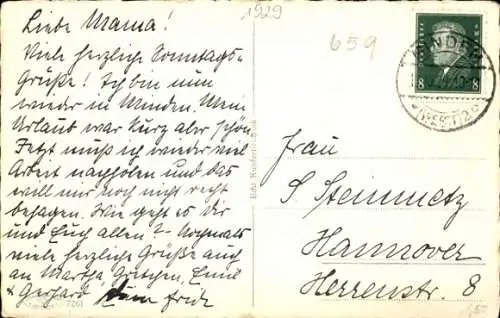 1929
659
Liebe Mama!
Viele herzliche Sonntags-
Grüße! Ich bin nun
wieder in Minden. Mein
Urlaub war kurz aber schön.
Jetzt muß ich wieder viel
Arbeit nachholen und das
will mir noch nicht recht
behagen. Wie geht es Dir
und Euch allen? - Nochmals
viele herzliche Grüße auch
an Martha, Gretchen, Emil
& Gerhard
MINDEN
8 8
(WESTF)
Frau
S. Steinmetz
Hannover
Herrenstr. 8